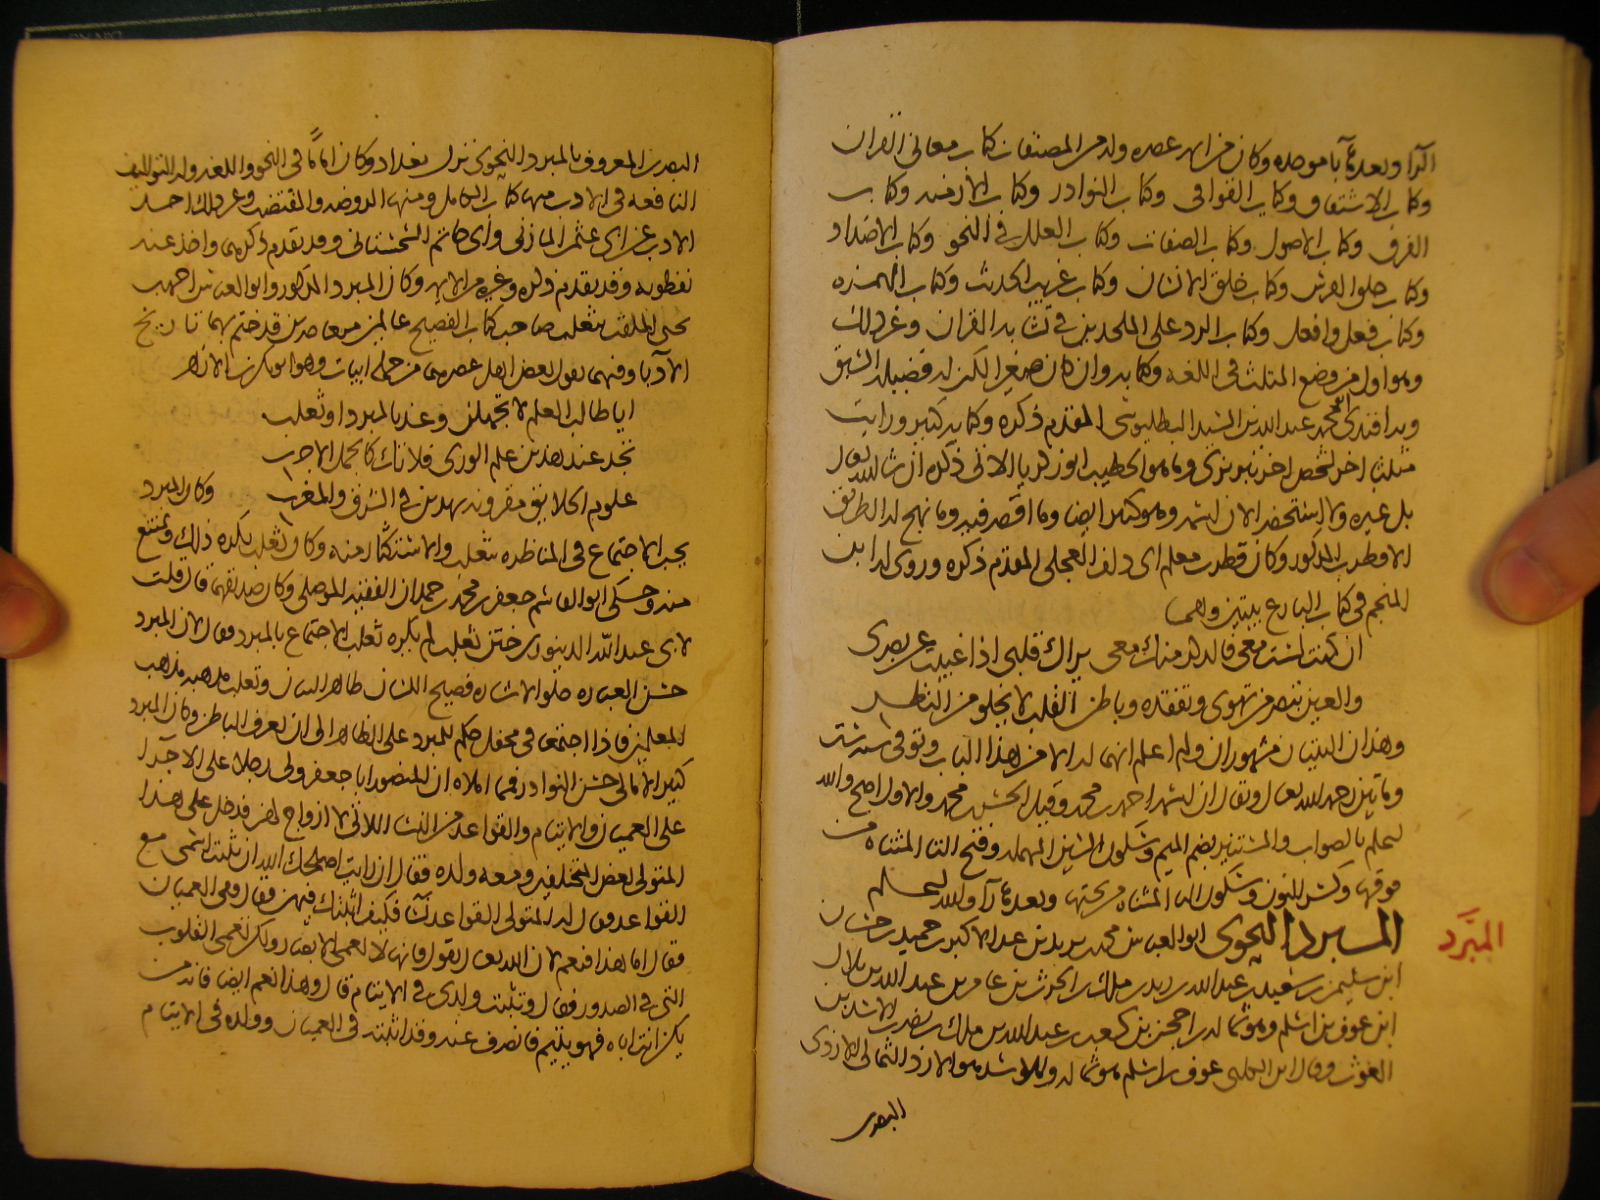 الراء وبعدها باء موحده وكان من ايمه عصره وله من المصنفات كتاب معاني القران
وكتاب الاشتقاق وكتاب القوافي وكتاب النوادر وكتاب الازمنه وكتاب
الفرق وكتاب الاصول وكتاب الصفات وكتاب العلل في النحو وكتاب الاضداد
وكتاب خلق الفرس وكتاب خلق الانسان وكتاب غريب الحديث وكتاب الهمزه
وكتاب فعل وافعل وكتاب الرد على الملحدين في تشابه القران وغير ذلك
وهو اول من وضع المثلث في اللغه وكتابه وان كان صغيرا لكن له فضيله السبق
وبه اقتدى ابو محمد عبد الله بن السيد البطليوسي المقدم ذكره وكتابه كبير ورايت
مثلثا اخر لشخص اخر تبريزي وما هو الخطيب ابو زكريا الاتي ذكره ان شا الله تعالى
بل غيره ولا استحضر الان اسمه وهو كبير ايضا وما اقصر فيه وما نهج له الطريق
الا قطرب المذكور وكان قطرب معلم اولاد ابي دلف العجلي المقدم ذكره وروى له ابن
المنجم في كتاب البارع بيتين وهما
ان كنت لست معي فالذكر منك معي يراك قلبي اذا غيبت عن بصري
والعين تبصر من تهوى وتفقده وباطن القلب لا يخلو من النظر
وهذان البيتان مشهوران ولم اعلم انهما له الا من هذا الباب وتوفي سنه ست
وماتين رحمه الله تعالى ويقال ان اسمه احمد بن محمد وقيل الحسن بن محمد والاول اصح والله
اعلم بالصواب والمستنير بضم الميم وسكون السين المهمله وفتح التا المثناه من
فوقها وكسر النون وسكون اليا المثناه من تحتها وبعدها را والله اعلم
المبرد النحوي ابو العباس محمد بن يزيد بن عبد الاكبر بن عمير بن حسان
المبَّرد
ابن سليمن بن سعد بن عبد الله بن زيد بن ملك بن الحرث بن عامر بن عبد الله بن بلال
ابن عوف بن اسلم وهو ثماله بن احجن بن كعب بن عبد الله بن ملك بن نصر بن الاسد بن
الغوث وقال ابن الكلبي عوف بن اسلم هو ثماله والاسد هو الازد الثمالي الازدي
البصري
البصري المعروف بالمبرد النحوي نزل بغداد وكان اماماً في النحو واللغه وله التواليف
النافعه في الادب منها كتاب الكامل ومنها الروضه والمقتضب وغير ذلك اخذ
الادب عن ابي عثمن المازني وابي حاتم السجستاني وقد تقدم ذكرهما واخذ عنه
نفطويه وقد تقدم ذكره وغيره من الايمه وكان المبرد المذكور وابو العباس احمد بن
يحيى الملقب بثعلب صاحب كتاب الفصيح عالمين متعاصرين قد ختم بهما تاريخ
الادبا وفيهما يقول بعض اهل عصرهما من جمله ابيات وهو ابو بكر بن الازهر
ايا طالب العلم لا تجهلن وعذ بالمبرد او ثعلب
تجد عند هذين علم الورى فلا تك كالجمل الاجرب
علوم الخلايق مقرونه بهذين في الشرق والمغرب وكان المبرد
يحب الاجتماع في المناظره بثعلب والاستكثار منه وكان ثعلب يكره ذلك ويمتنع
منه وحكى ابو القاسم جعفر بن محمد بن حمدان الفقيه الموصلي وكان صديقهما قال قلت
لابي عبد الله الدينوري ختن ثعلب لم يكره ثعلب الاجتماع بالمبرد فقال لان المبرد
حسن العباره حلو الاشاره فصيح اللسان ظاهر البيان وثعلب مذهبه مذهب
المعلمين فاذا اجتمعا في محفل حكم للمبرد على الظاهر الى ان يعرف الباطن وكان المبرد
كثير الامالي حسن النوادر فمما املاه ان المنصور ابا جعفر ولى رجلا على الاجرا
على العميان والايتام والقواعد من النسا اللاتي لا ازواج لهن فدخل على هذا
المتولي بعض المتخلفين ومعه ولده فقال ان رايت اصلحك الله ان تثبت اسمي مع
القواعد فقال له المتولي القواعد نسآ فكيف اثبتك فيهن فقال ففي العميان
فقال اما هذا فنعم لان الله تعالى يقول فانها لا تعمى الابصار ولكن تعمى القلوب
التي في الصدور فقال وتثبت ولدي في الايتام فقال وهذا نعم ايضا فانه من
يكن انت اباه فهو يتيم فانصرف عنه وقد اثبته في العميان وولده في الايتام